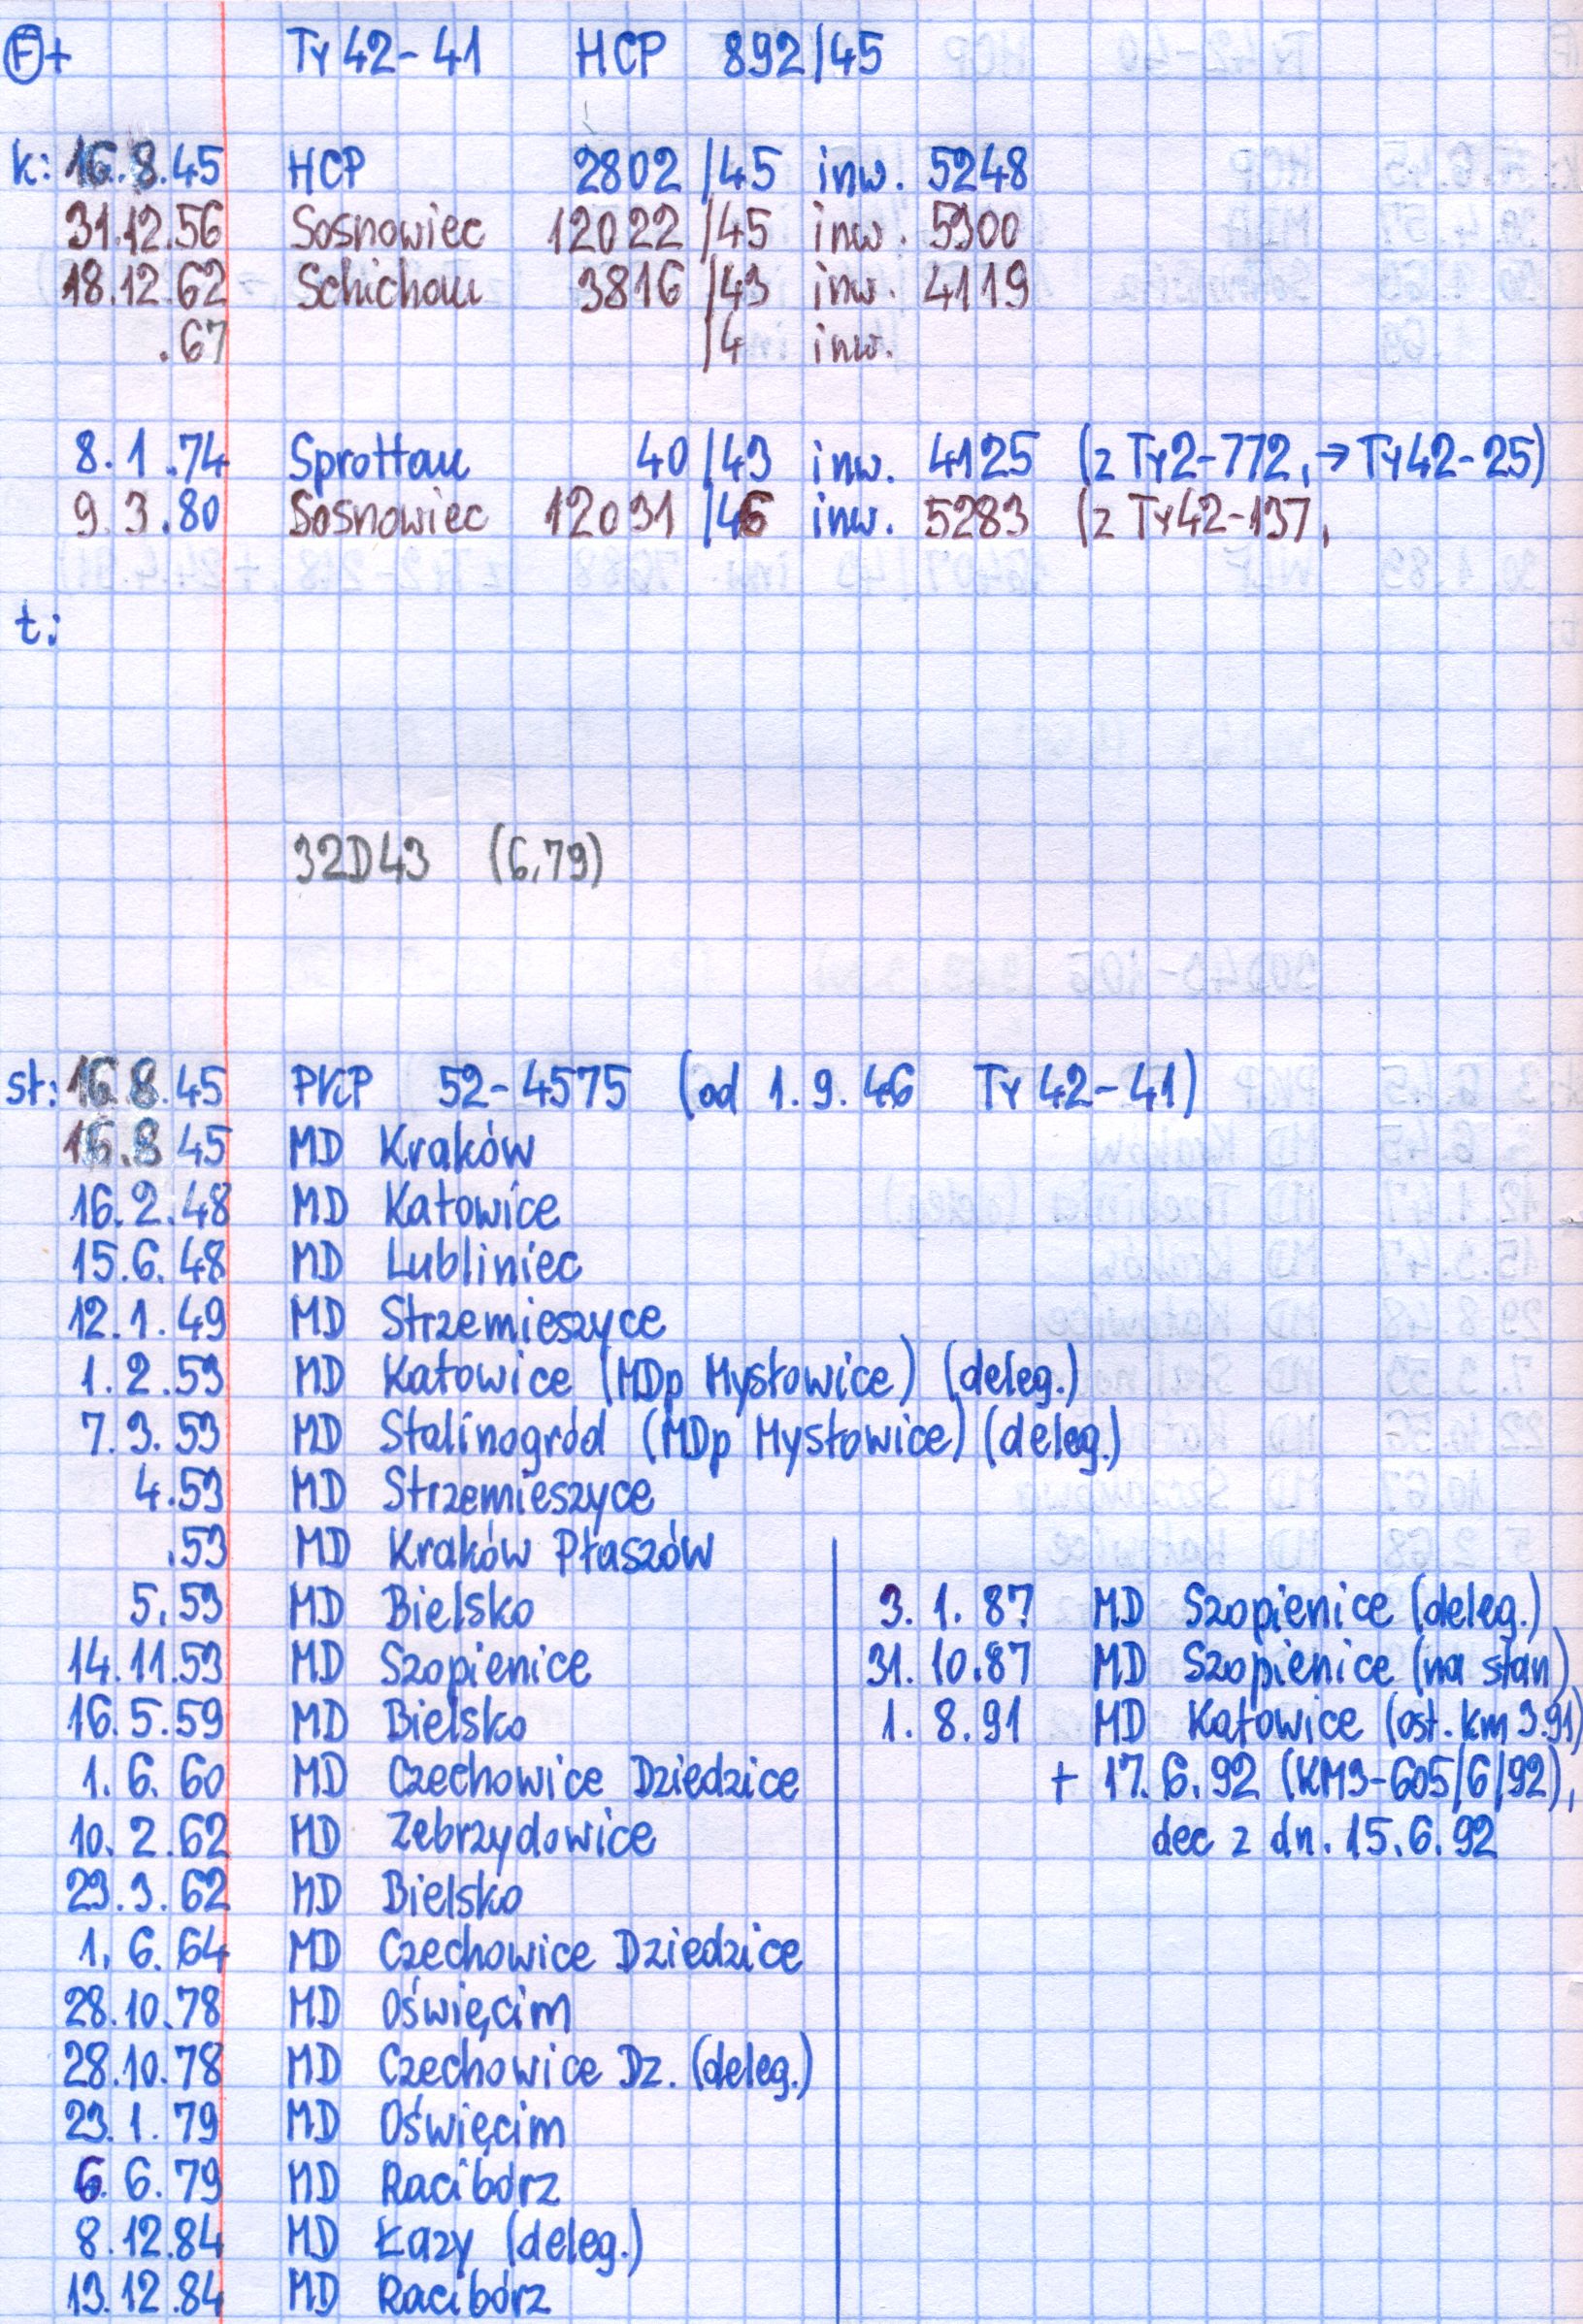 F+ Ty42-41 HCP 892/45
k: 16.8.45 HCP 2802/45 inw. 5248
31.12.56 Sosnowiec 12022/45 inw. 5900
18.12.62 Schichau 3816/43 inw. 4119
.67 /4 inw.
8.1.74 Sprottau 40/43 inw. 4125 (z Ty2-772, → Ty42-25)
9.3.80 Sosnowiec 12031/46 inw. 5283 (z Ty42-137,
t:
32D43 (6.79)
st: 16.8.45 PKP 52-4575 (od 1.9.46 Ty42-41)
16.8.45 MD Kraków
16.2.48 MD Katowice
15.6.48 MD Lubliniec
12.1.49 MD Strzemieszyce
1.2.53 MD Katowice (MDp Mysłowice) (deleg.)
7.3.53 MD Stalinogród (MDp Mysłowice) (deleg.)
4.53 MD Strzemieszyce
.53 MD Kraków Płaszów
5.53 MD Bielsko
14.11.53 MD Szopienice
16.5.59 MD Bielsko
1.6.60 MD Czechowice Dziedzice
10.2.62 MD Zebrzydowice
29.3.62 MD Bielsko
1.6.64 MD Czechowice Dziedzice
28.10.78 MD Oświęcim
28.10.78 MD Czechowice Dz. (deleg.)
23.1.79 MD Oświęcim
6.6.79 MD Racibórz
8.12.84 MD Łazy (deleg.)
13.12.84 MD Racibórz
3.1.87 MD Szopienice (deleg.)
31.10.87 MD Szopienice (na stan)
1.8.91 MD Katowice (ost. km 3.91)
+ 17.6.92 (KM3-605/6/92),
dec z dn. 15.6.92